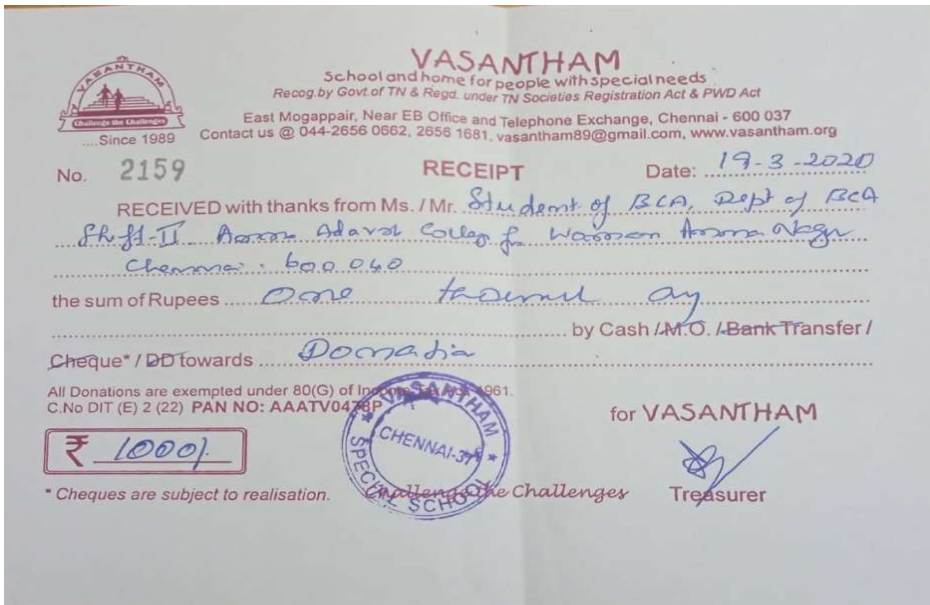 VASANTHAM
Challenge the Challenges
....Since 1989
VASANTHAM
School and home for people with special needs
Recog.by Govt.of TN & Regd. under TN Societies Registration Act & PWD Act
East Mogappair, Near EB Office and Telephone Exchange, Chennai - 600 037
Contact us @ 044-2656 0662, 2656 1681, vasantham89@gmail.com, www.vasantham.org
No. 2159 RECEIPT Date: 19-3-2020
RECEIVED with thanks from Ms. / Mr. Student of BCA, Dept of BCA
Shift-II Anna Adarsh College for Women Anna Nagar
Chennai. 600 040
the sum of Rupees One thousand only
by Cash / M.O. / Bank Transfer /
Cheque* / DD towards Donation
All Donations are exempted under 80(G) of Income Tax Act 1961.
C.No DIT (E) 2 (22) PAN NO: AAATV0478P
for VASANTHAM
₹ 1000/.
VASANTHAM
CHENNAI-37
SPECIAL SCHOOL
* Cheques are subject to realisation. Challenge the Challenges Treasurer